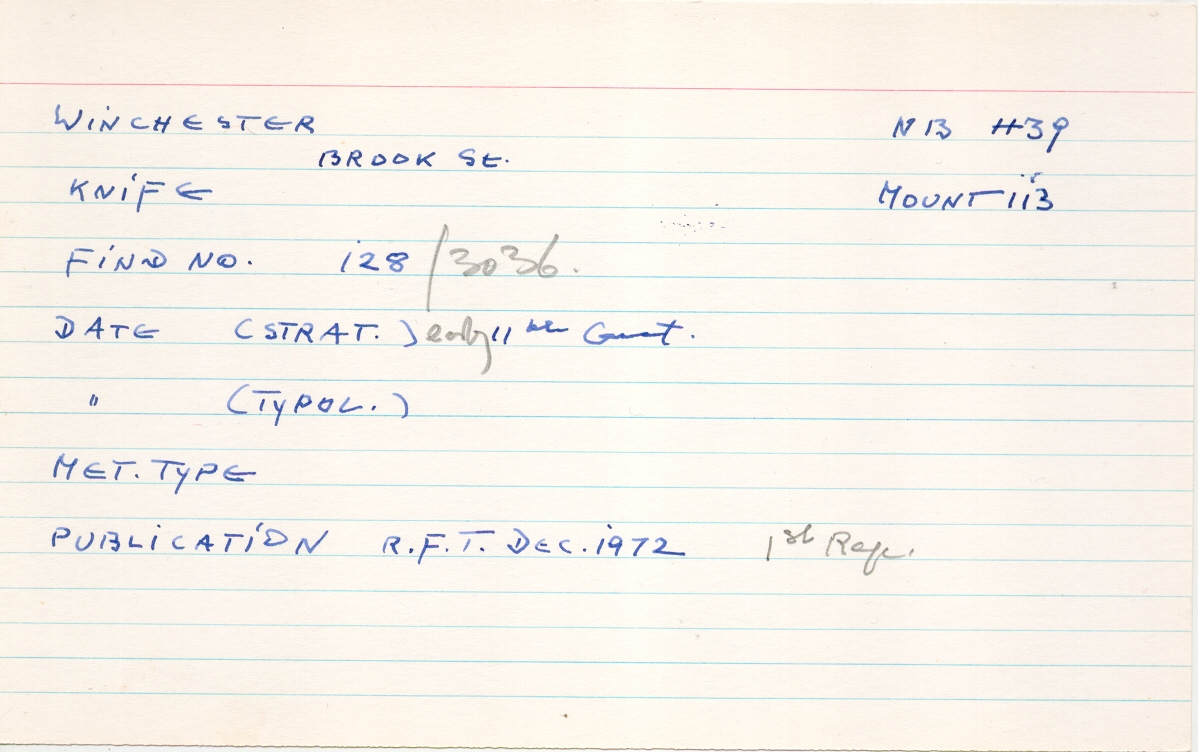 WINCHESTER NB H39
BROOK ST.
KNIFE MOUNT 113
FIND NO. 128/3036.
DATE (STRAT.) early 11th Cent.
" (TYPOL.)
MET. TYPE
PUBLICATION R.F.T. DEC. 1972 1st Rep.